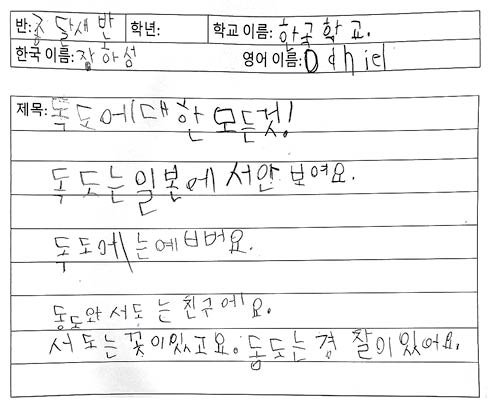 반: 종달새 반 학년: 학교 이름: 한국학교.
한국 이름: 장하성 영어 이름: Daniel
제목: 독도에 대한 모든것!
독도는 일본에서 안 보여요.
독도에는 예뻐요.
동도와 서도는 친구에요.
서도는 꽃이있고요. 동도는 경찰이있어요.